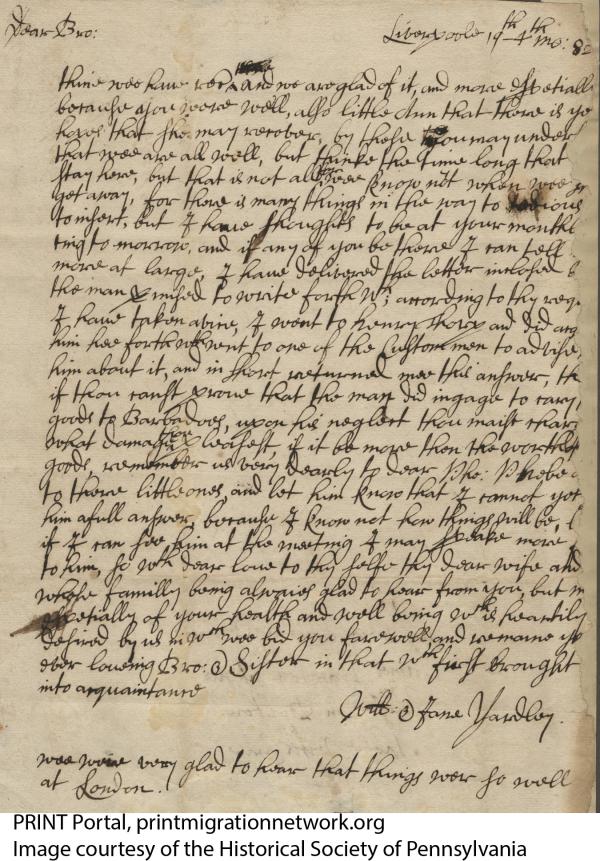 Dear Bro: Liverpoole, 9th 4th mo: 82
thine wee have rec and we are glad of it, and more espetially
because you were well, also little Ann that there is
hopes that she may recover, by these you may under
that wee are all well, but thinke the time long that
stay here, but that is not all wee know not when wee
get away, for there is many things in the way to
to insert, but I have thoughts to be at your monthl
ting to morrow, and if any of you be there I can tell
more at large, I have delivered the letter inclosed
the man promised to write forth wth; according to thy requ
I have taken advice, I went to Henry Thorp and did acq
him hee forth wth went to one of the Custom men to advise,
him about it, and in short returned mee this answer, th
if thou canst prove that the man did ingage to cary
goods to Barbadoes, upon his neglect thou maist char
what damage thou pleasest, if it be more then the worth of
goods, remember us very dearly to dear Pho: Phebe
to there little ones, and let him know that I cannot yet
him a full answer, because I know not how things will be,
if I can see him at the meeting I may speake more
to him, so wth dear love to thy selfe thy dear wife and
whole familly being alwaies glad to hear from you, but m
espetially of your health and well being wch is heartily
desired by us in wch wee bid you farewell and remaine yr
ever loveing Bro: & Sister in that wch first brought
into acquaintance
Will: & Jane Yardley.
wee were very glad to hear that things wer so well
at London.
PRINT Portal, printmigrationnetwork.org
Image courtesy of the Historical Society of Pennsylvania